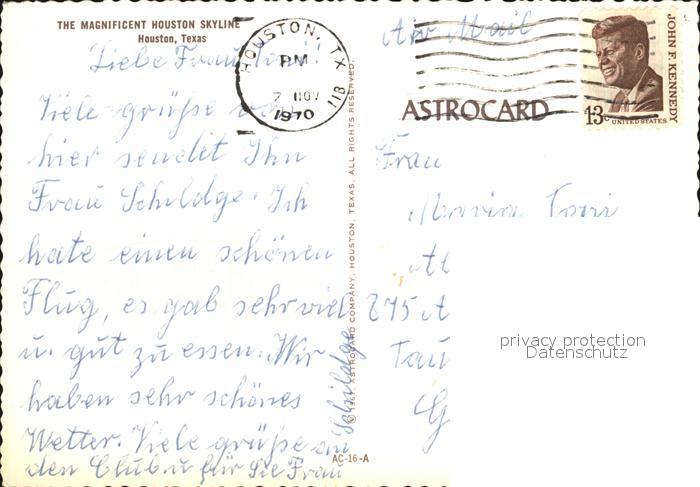 THE MAGNIFICENT HOUSTON SKYLINE
Houston, Texas
Liebe Frau Tori!!
Viele grüße von
hier sendet Ihn
Frau Schildge. Ich
hate einen schönen
Flug, es gab sehr viel
u. gut zu essen. Wir
haben sehr schönes
Wetter. Viele grüße an
den Club u für Sie Frau
Schildge
AC-16-A
ASTROCARD COMPANY, HOUSTON, TEXAS. ALL RIGHTS RESERVED.
HOUSTON, TX
PM
7 NOV
1970
11B
Air Mail
ASTROCARD
JOHN F. KENNEDY
13c
UNITED STATES
Frau
Tori
875 A
Tau
G
privacy protection
Datenschutz